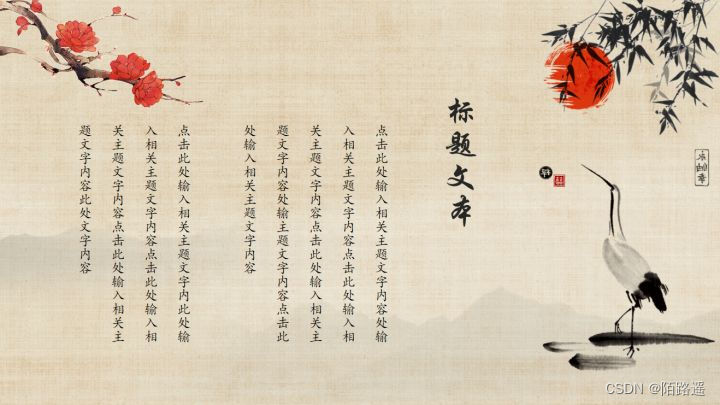 标题文本
点击此处输入相关主题文字内容处输
入相关主题文字内容点击此处输入相
关主题文字内容点击此处输入相关主
题文字内容处输主题文字内容点击此
处输入相关主题文字内容
点击此处输入相关主题文字内此处输
入相关主题文字内容点击此处输入相
关主题文字内容点击此处输入相关主
题文字内容此处文字内容
CSDN @陌路遥